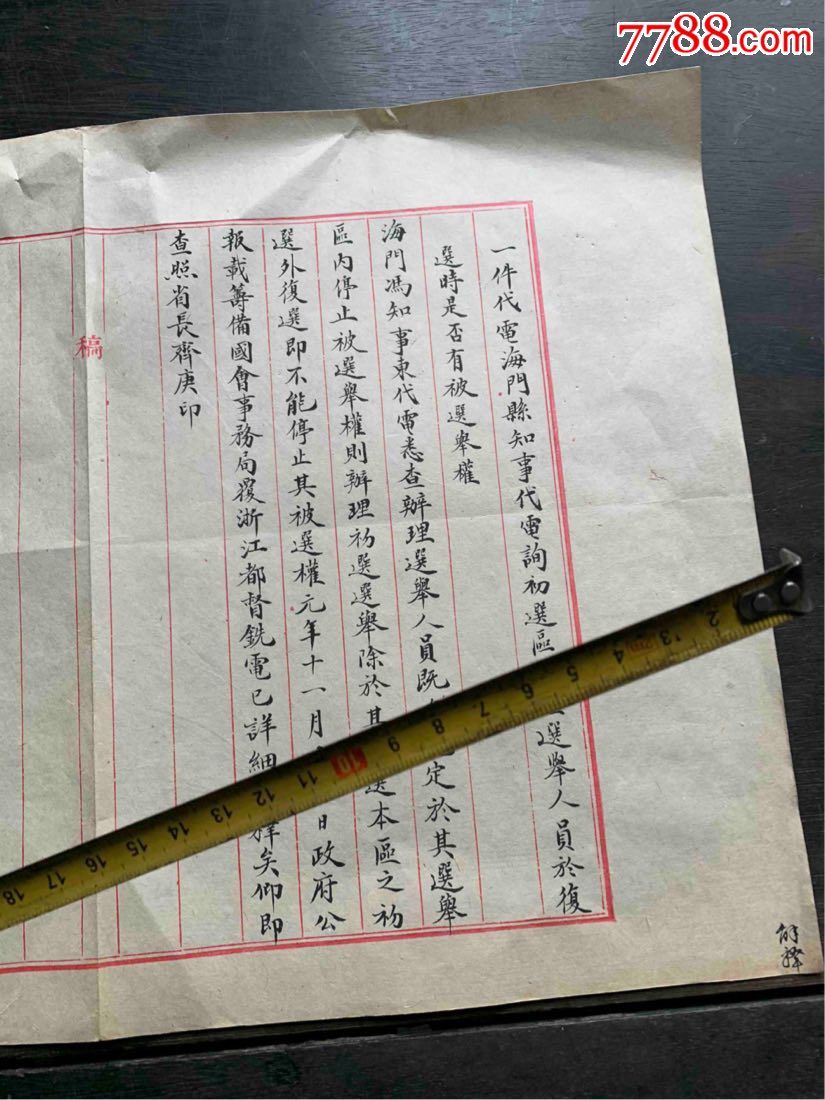 7788.com
一件代電海門縣知事代電詢初選區選舉人員於復
選時是否有被選舉權
海門馮知事東代電悉查辦理選舉人員既定於其選舉
區內停止被選舉權則辦理初選選舉除於其選本區之初
選外復選即不能停止其被選權元年十一月日政府公
報載籌備國會事務局覆浙江都督銑電已詳細釋矣仰即
查照省長齊庚印
稿
解釋
2
3
4
5
6
7
8
9
10
11
12
13
14
15
16
17
18